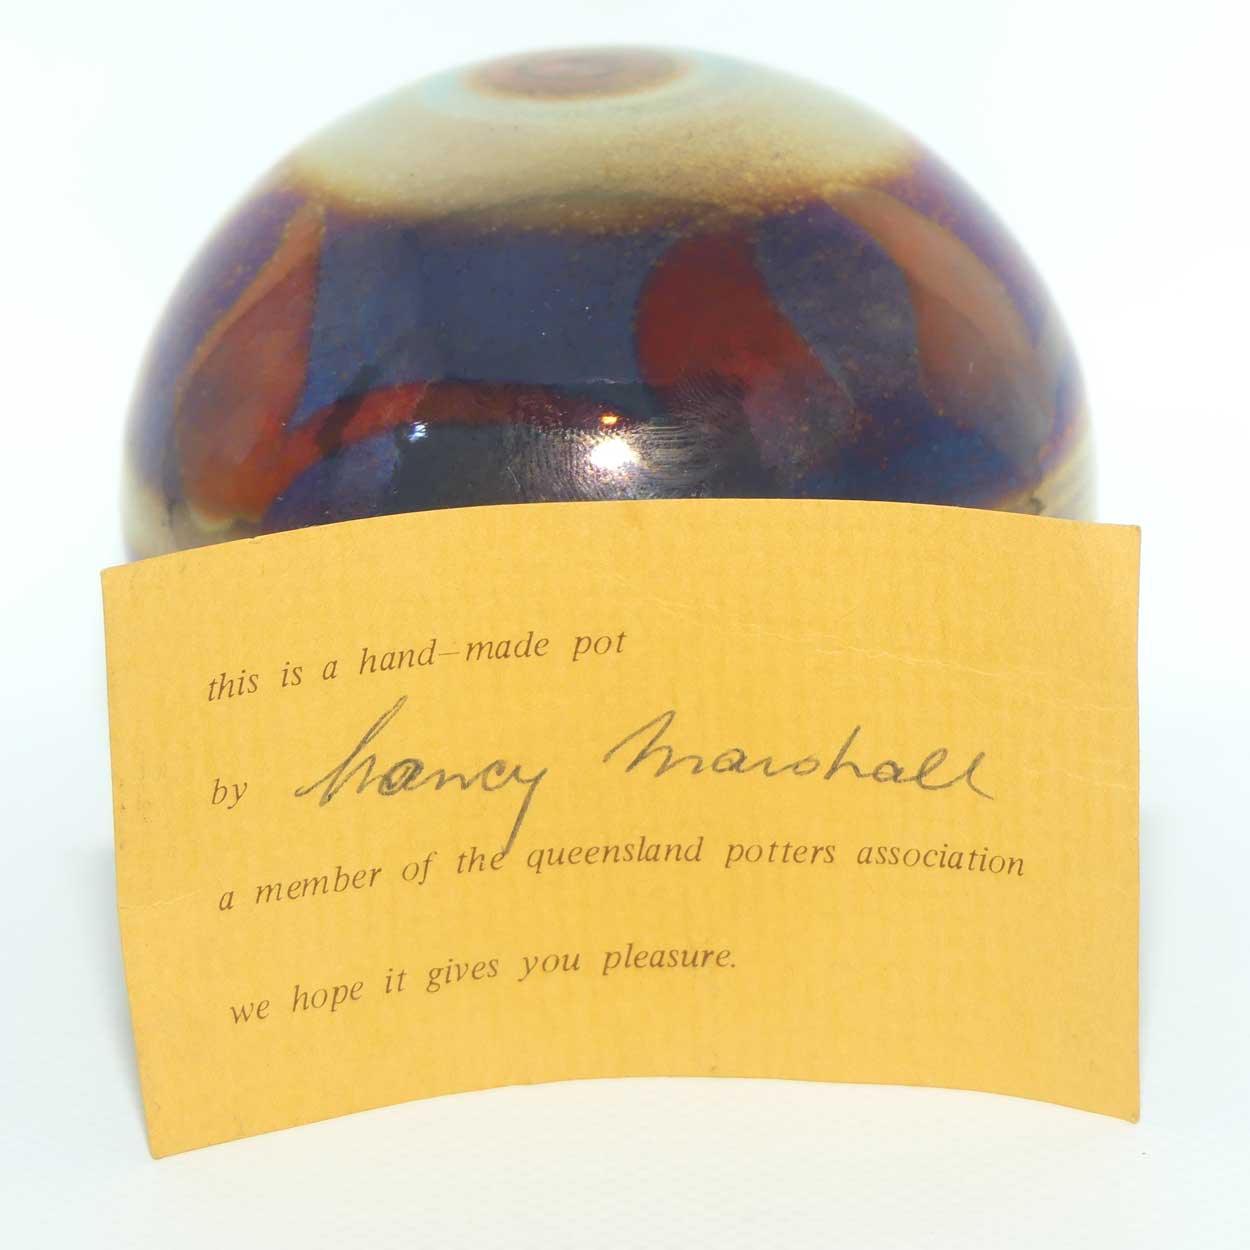 this is a hand-made pot
by Nancy Marshall
a member of the queensland potters association
we hope it gives you pleasure.